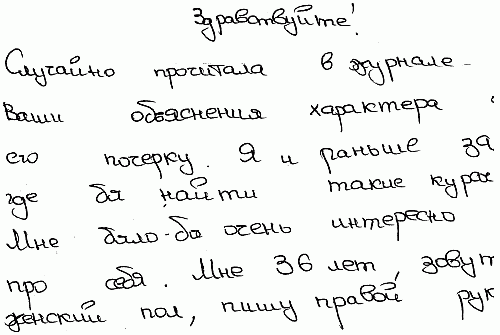 Здравствуйте!
Случайно прочитала в журнале
Ваши объяснения характера
его почерку. Я и раньше
где бы найти такие
Мне было-бы очень интересно
про себя. Мне 36 лет, зовут
женский пол, пишу правой рук